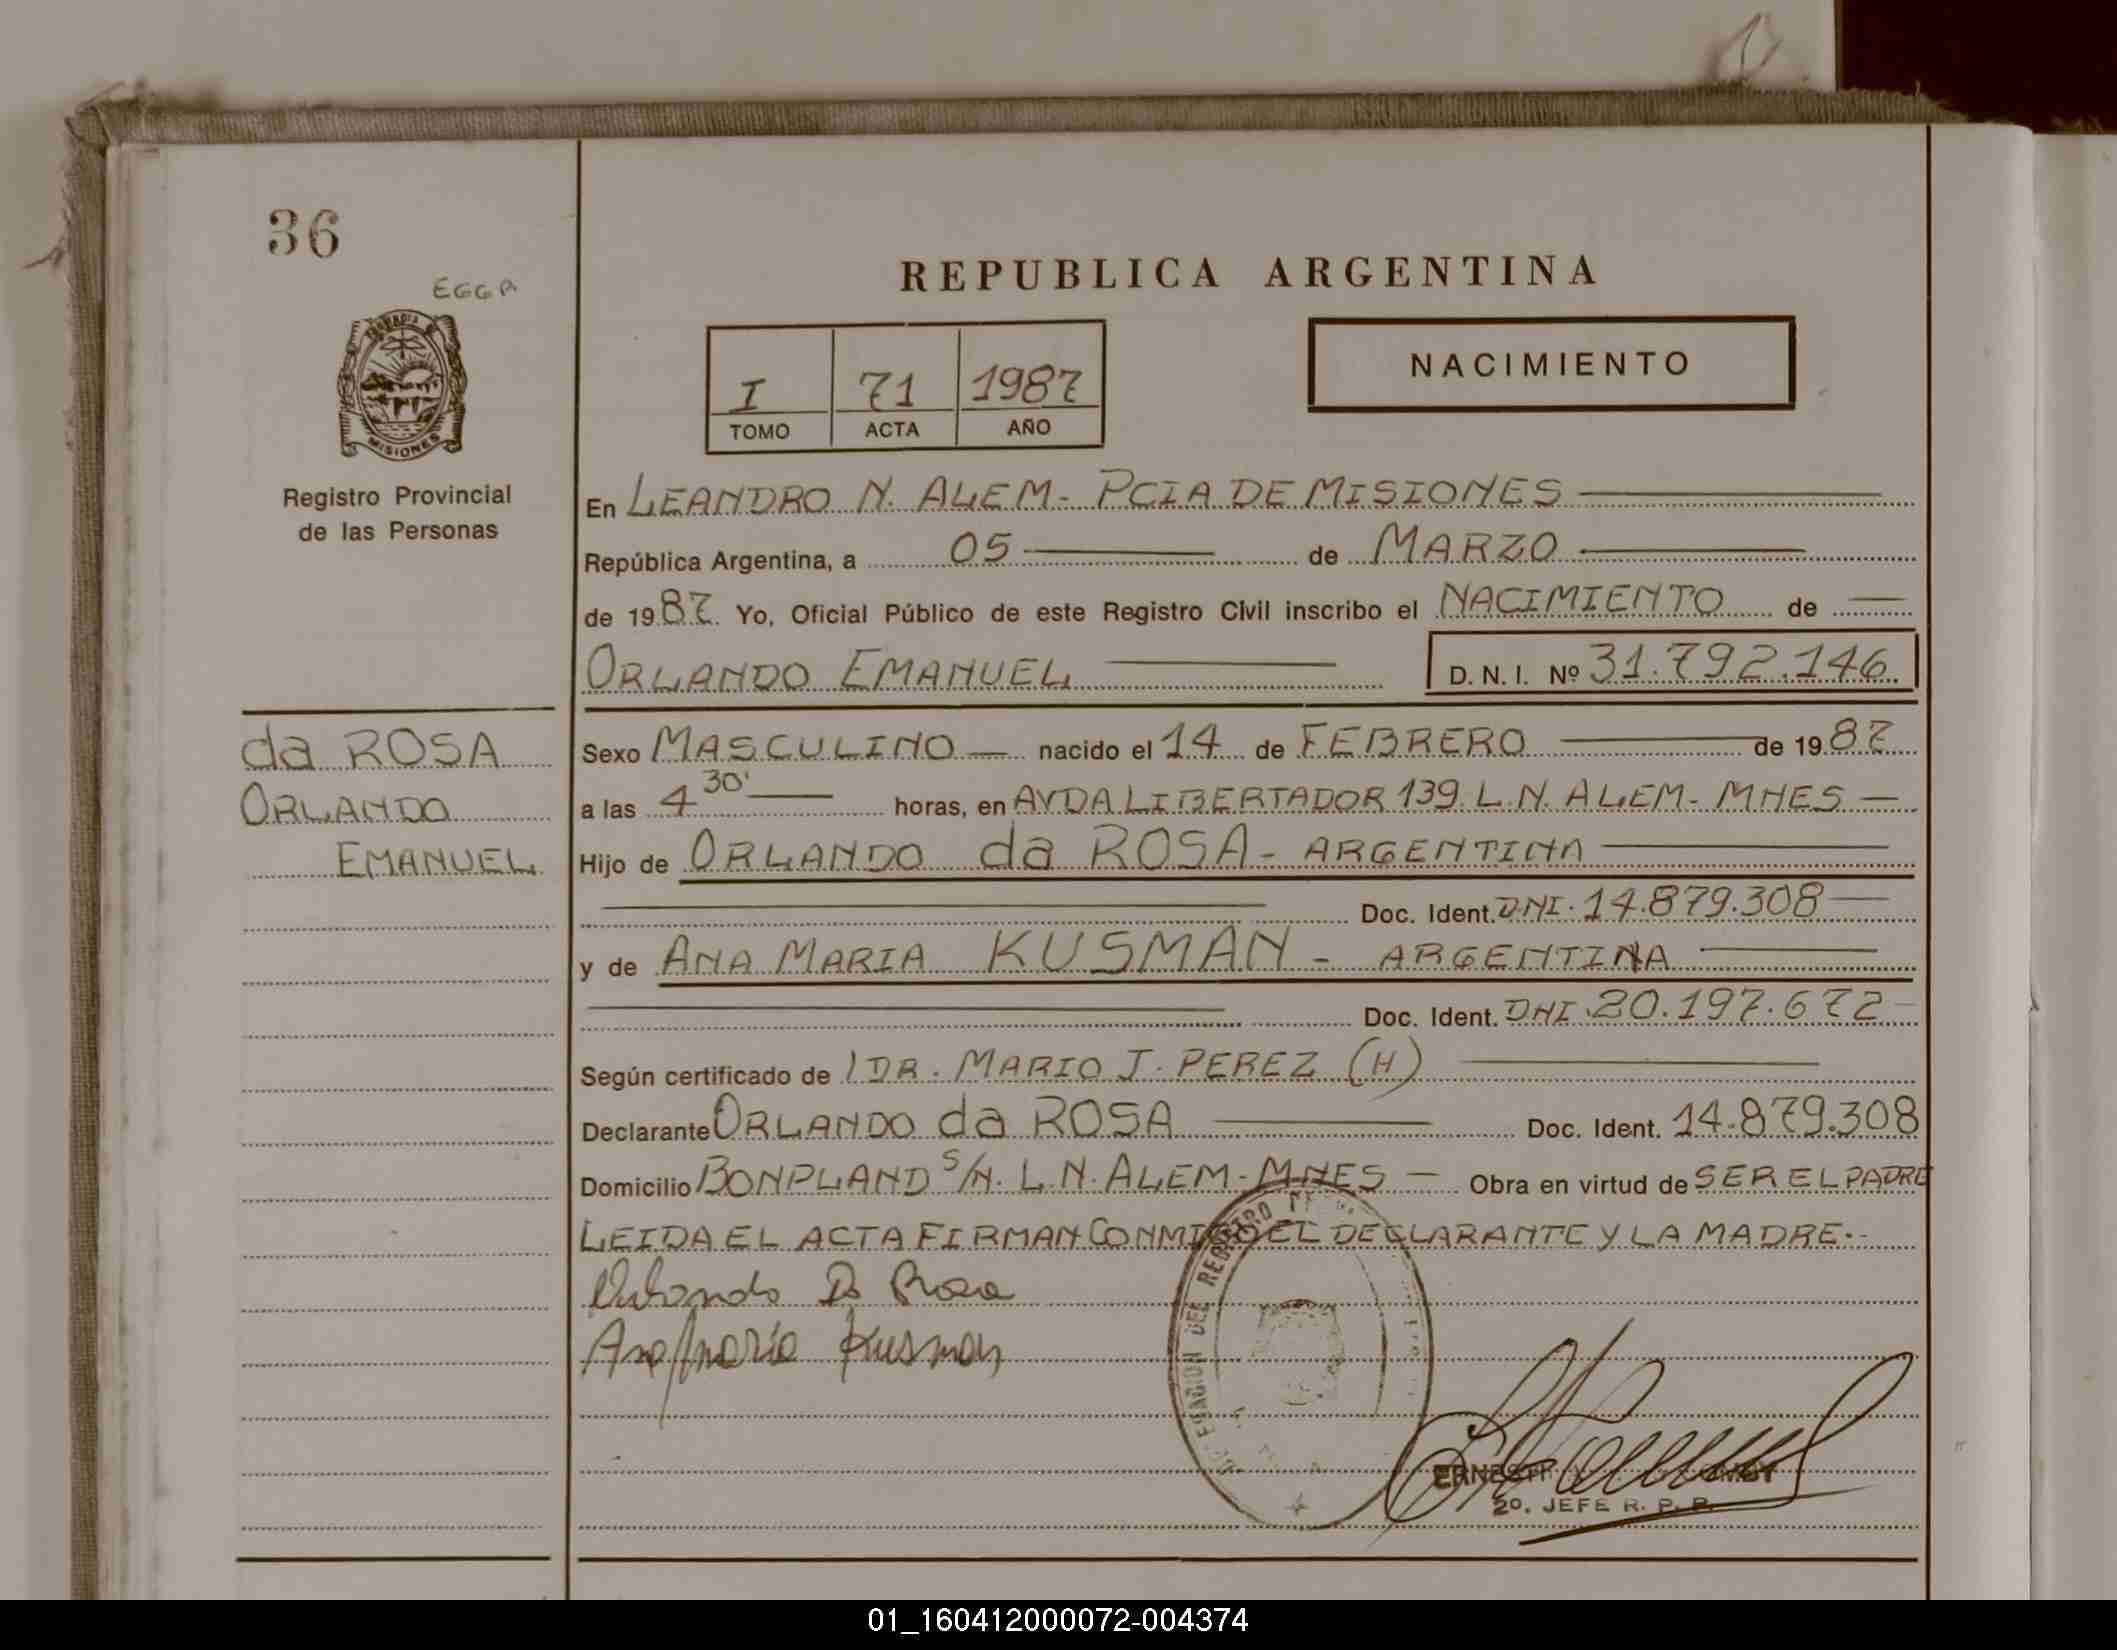 36
EGGA
REPUBLICA ARGENTINA
NACIMIENTO
I 71 1987
TOMO ACTA AÑO
MISIONES
Registro Provincial
de las Personas
En LEANDRO N. ALEM - PCIA DE MISIONES
República Argentina, a 05 de MARZO
de 1987 Yo, Oficial Público de este Registro Civil inscribo el NACIMIENTO de
ORLANDO EMANUEL D. N. I. Nº 31.792.146
da ROSA
ORLANDO
EMANUEL
Sexo MASCULINO nacido el 14 de FEBRERO de 1987
a las 4 30' horas, en AVDA LIBERTADOR 139. L. N. ALEM - MNES
Hijo de ORLANDO da ROSA - ARGENTINA
Doc. Ident. DNI. 14.879.308
y de ANA MARIA KUSMAN - ARGENTINA
Doc. Ident. DNI. 20.197.672
Según certificado de DR. MARIO J. PEREZ (H)
Declarante ORLANDO da ROSA Doc. Ident. 14.879.308
Domicilio BONPLAND S/N. L. N. ALEM - MNES Obra en virtud de SER EL PADRE
LEIDA EL ACTA FIRMAN CONMIGO EL DECLARANTE Y LA MADRE.-
Orlando Da Rosa
Ana Maria Kusman
DEL REGISTRO
2º. JEFE R. P. P.
01_160412000072-004374